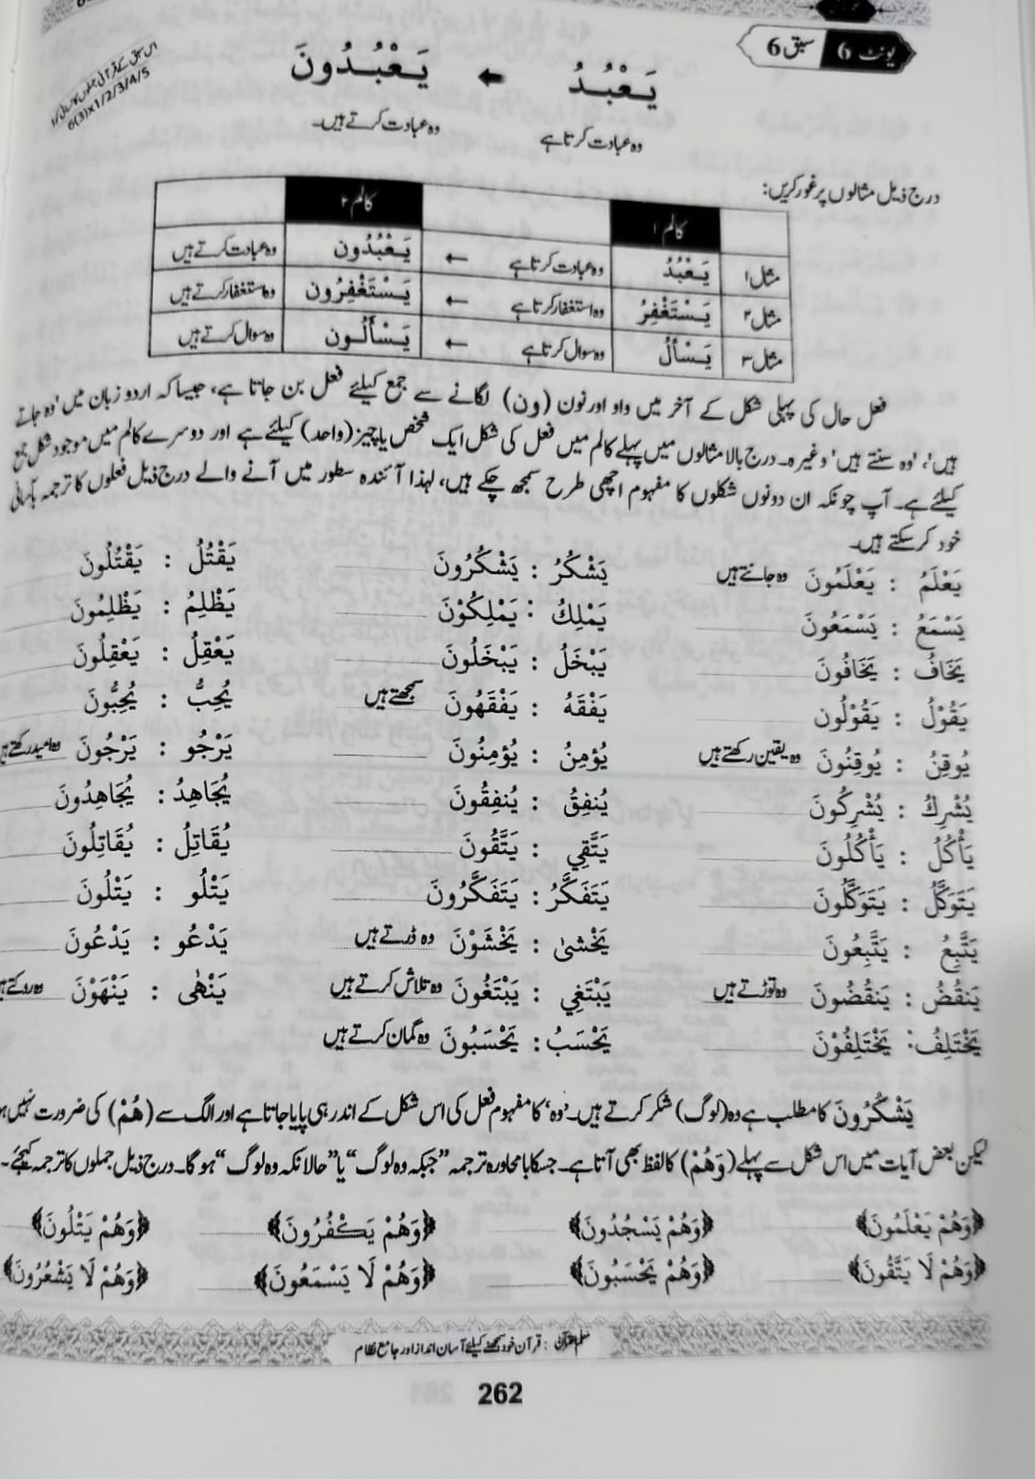 یونٹ 6 سبق 6
6(3)x1/2/3/4/5
يَـعْـبُـدُ ← يَـعْـبُـدُونَ
وہ عبادت کرتا ہے وہ عبادت کرتے ہیں۔
درج ذیل مثالوں پر غور کریں:
کالم ۱ کالم ۲
مثال ۱ يَـعْبُدُ وہ عبادت کرتا ہے ← يَـعْبُدُون وہ عبادت کرتے ہیں
مثال ۲ يَـسْتَغْفِرُ وہ استغفار کرتا ہے ← يَـسْتَغْفِرُون وہ استغفار کرتے ہیں
مثال ۳ يَـسْأَلُ وہ سوال کرتا ہے ← يَـسْأَلُـون وہ سوال کرتے ہیں
فعل حال کی پہلی شکل کے آخر میں واو اور نون (ون) لگانے سے جمع کیلئے فعل بن جاتا ہے، جیسا کہ اردو زبان میں 'وہ جاتے
ہیں'، 'وہ سنتے ہیں' وغیرہ۔ درج بالا مثالوں میں پہلے کالم میں فعل کی شکل ایک شخص یا چیز (واحد) کیلئے ہے اور دوسرے کالم میں موجود شکل جمع
کیلئے ہے۔ آپ چونکہ ان دونوں شکلوں کا مفہوم اچھی طرح سمجھ چکے ہیں، لہذا آئندہ سطور میں آنے والے درج ذیل فعلوں کا ترجمہ بآسانی
خود کر سکتے ہیں۔
يَعْلَمُ : يَعْلَمُونَ وہ جانتے ہیں يَشْكُرُ : يَشْكُرُونَ يَقْتُلُ : يَقْتُلُونَ
يَسْمَعُ : يَسْمَعُونَ يَمْلِكُ : يَمْلِكُوْنَ يَظْلِمُ : يَظْلِمُونَ
يَخَافُ : يَخَافُونَ يَبْخَلُ : يَبْخَلُونَ يَعْقِلُ : يَعْقِلُونَ
يَقُوْلُ : يَقُوْلُون يَفْقَهُ : يَفْقَهُونَ سمجھتے ہیں يُحِبُّ : يُحِبُّونَ
يُوقِنُ : يُوقِنُونَ وہ یقین رکھتے ہیں يُؤمِنُ : يُؤمِنُونَ يَرْجُو : يَرْجُونَ وہ امید رکھتے
يُشْرِكُ : يُشْرِكُونَ يُنفِقُ : يُنفِقُونَ يُجَاهِدُ : يُجَاهِدُونَ
يَأْكُلُ : يَأْكُلُونَ يَتَّقِي : يَتَّقُونَ يُقَاتِلُ : يُقَاتِلُونَ
يَتَوَكَّلُ : يَتَوَكَّلُونَ يَتَفَكَّرُ : يَتَفَكَّرُونَ يَتْلُو : يَتْلُونَ
يَتَّبِعُ : يَتَّبِعُونَ يَخْشىٰ : يَخْشَوْنَ وہ ڈرتے ہیں يَدْعُو : يَدْعُونَ
يَنقُضُ : يَنقُضُونَ وہ توڑتے ہیں يَبْتَغِي : يَبْتَغُونَ وہ تلاش کرتے ہیں يَنْهٰى : يَنْهَوْنَ وہ روکتے
يَخْتَلِفُ : يَخْتَلِفُوْنَ يَحْسَبُ : يَحْسَبُونَ وہ گمان کرتے ہیں
يَشْكُرُونَ کا مطلب ہے وہ (لوگ) شکر کرتے ہیں۔ 'وہ' کا مفہوم فعل کی اس شکل کے اندر ہی پایا جاتا ہے اور الگ سے (هُمْ) کی ضرورت نہیں
لیکن بعض آیات میں اس شکل سے پہلے (وَهُمْ) کا لفظ بھی آتا ہے۔ جسکا بامحاورہ ترجمہ ”جبکہ وہ لوگ“ یا ”حالانکہ وہ لوگ“ ہوگا۔ درج ذیل جملوں کا ترجمہ کیجئے۔
﴿وَهُمْ يَعْلَمُونَ﴾ ﴿وَهُمْ يَسْجُدُونَ﴾ ﴿وَهُمْ يَكْفُرُونَ﴾ ﴿وَهُمْ يَتْلُونَ﴾
﴿وَهُمْ لَا يَتَّقُونَ﴾ ﴿وَهُمْ يَحْسَبُونَ﴾ ﴿وَهُمْ لَا يَسْمَعُونَ﴾ ﴿وَهُمْ لَا يَشْعُرُونَ﴾
معلم القرآن : قرآن خود سمجھنے کیلئے آسان انداز اور جامع نظام
262